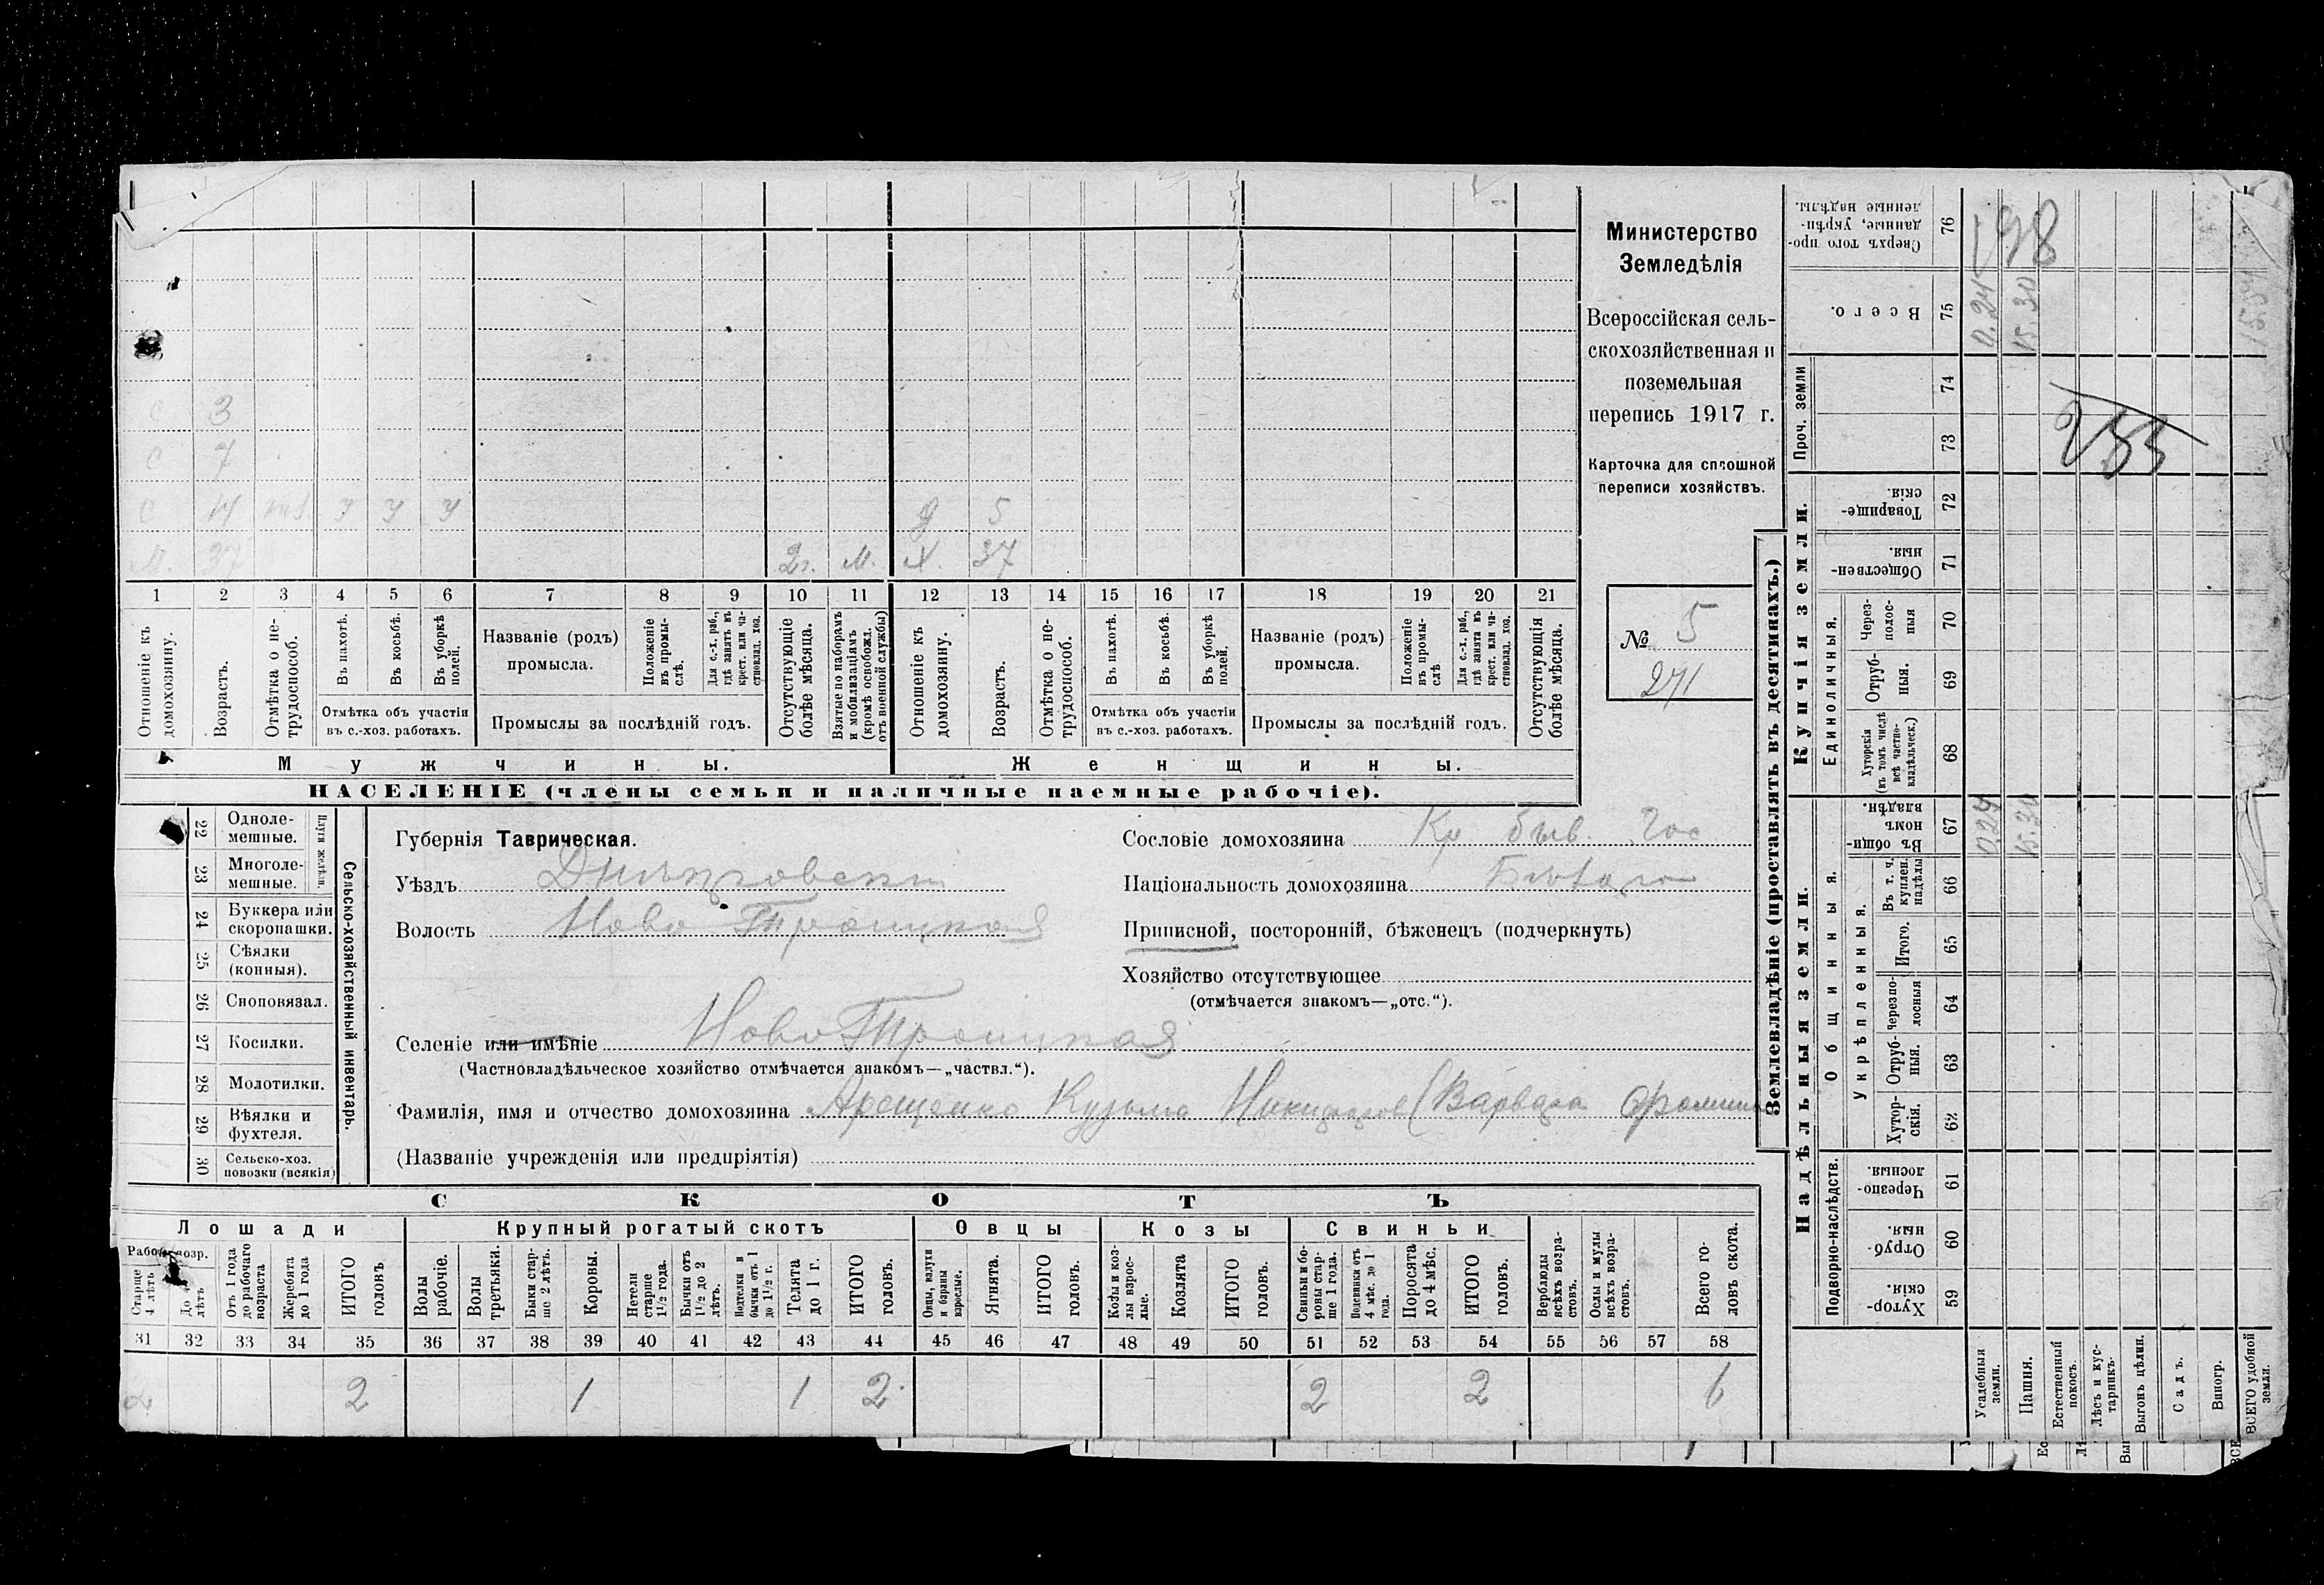 3
7
У У У
Д 5
М. 37 2 г. М. Х. 37
1 2 3 4 5 6 7 8 9 10 11 12 13 14 15 16 17 18 19 20 21
Отношеніе къ домохозяину.
Возрастъ.
Отмѣтка о нетрудоспособ.
Въ пахотѣ.
Въ косьбѣ.
Въ уборкѣ полей.
Отмѣтка объ участіи въ с.-хоз. работахъ.
Названіе (родъ) промысла.
Положеніе въ промыслѣ.
Для с.-х. раб., гдѣ занятъ въ крест. или частновлад. хоз.
Промыслы за послѣдній годъ.
Отсутствующіе болѣе мѣсяца.
Взятые по наборамъ и мобилизаціямъ (кромѣ освобожд. отъ военной службы)
Отношеніе къ домохозяину.
Возрастъ.
Отмѣтка о нетрудоспособ.
Въ пахотѣ.
Въ косьбѣ.
Въ уборкѣ полей.
Отмѣтка объ участіи въ с.-хоз. работахъ.
Названіе (родъ) промысла.
Положеніе въ промыслѣ
Для с.-х. раб., гдѣ занята въ крест. или частновлад. хоз.
Промыслы за послѣдній годъ.
Отсутствующія болѣе мѣсяца.
Мужчины.
Женщины.
НАСЕЛЕНІЕ (члены семьи и наличные наемные рабочіе).
Министерство
Земледѣлія
Всероссійская сель-
скохозяйственная и
поземельная
перепись 1917 г.
Карточка для сплошной
переписи хозяйствъ.
№ 5
271
Сельско-хозяйственный инвентарь.
Плуги желѣзн.
22 Одноле-мешные.
23 Многоле-мешные.
24 Буккера или скоропашки.
25 Сѣялки (конныя).
26 Сноповязал.
27 Косилки.
28 Молотилки.
29 Вѣялки и фухтеля.
30 Сельско-хоз. повозки (всякія)
Губернія Таврическая.
Уѣздъ Днѣпровскій
Волость Ново Троицкая
Селеніе или имѣніе Ново Троицкая
(Частновладѣльческое хозяйство отмѣчается знакомъ—„частвл.“).
Сословіе домохозяина Кр быв. Гос
Національность домохозяина
Приписной, посторонній, бѣженецъ (подчеркнуть)
Хозяйство отсутствующее
(отмѣчается знакомъ—„отс.“).
Фамилія, имя и отчество домохозяина Арещенко Кузьма Никифоров (Варвара
(Названіе учрежденія или предпріятія)
СКОТЪ
Лошади
Рабоч. возр.
Старше 4 лѣтъ
До 4 лѣтъ
Отъ 1 года до рабочаго возраста
Жеребята до 1 года
ИТОГО головъ
Крупный рогатый скотъ
Волы рабочіе.
Волы третьяки.
Быки старше 2 лѣтъ.
Коровы.
Нетели старше 1½ года.
Бычки отъ 1½ до 2 лѣтъ.
Подтелки и бычки отъ 1 до 1½ г.
Телята до 1 г.
ИТОГО головъ.
Овцы
Овцы, валухи и бараны взрослые.
Ягнята.
ИТОГО головъ.
Козы
Козы и козлы взрослые.
Козлята
ИТОГО головъ.
Свиньи
Свиньи и боровы старше 1 года.
Подсвинки отъ 4 мѣс. до 1 года.
Поросята до 4 мѣс.
ИТОГО головъ.
Верблюды всѣхъ возрастовъ.
Ослы и мулы всѣхъ возрастовъ.
Всего головъ скота.
31 32 33 34 35 36 37 38 39 40 41 42 43 44 45 46 47 48 49 50 51 52 53 54 55 56 57 58
2 2 1 1 2 2 2 6
Землевладѣніе (проставлять въ десятинахъ.)
Сверхъ того проданные, укрѣпленные надѣлы. 76
Всего. 75
Проч. земли
74
73
Купчія земли.
Товарищескія. 72
Общественныя. 71
Единоличныя.
Черезполосныя 70
Отрубныя. 69
Хуторскія (въ томъ числѣ всѣ частновладѣльческ.) 68
Надѣльныя земли.
Общинныя.
Въ общинномъ владѣн. 67
Укрѣпленныя.
Въ т. ч. куплен. надѣлы 66
Итого. 65
Черезполосныя 64
Отрубныя. 63
Хуторскія. 62
Подворно-наслѣдств.
Черезполосныя. 61
Отрубныя. 60
Хуторскія. 59
Усадебныя земли.
Пашня.
Естественный покосъ.
Лѣсъ и кустарникъ.
Выгонъ цѣлин.
Садъ.
Виногр.
ВСЕГО удобной земли.
198
0.24
15.30
15.54
0.24
15.30